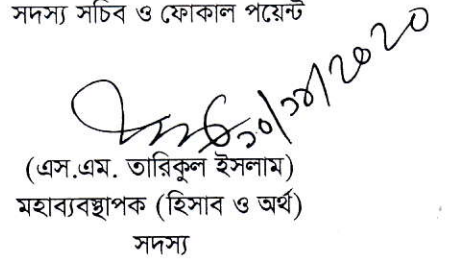 সদস্য সচিব ও ফোকাল পয়েন্ট
(এস.এম. তারিকুল ইসলাম)
মহাব্যবস্থাপক (হিসাব ও অর্থ)
সদস্য